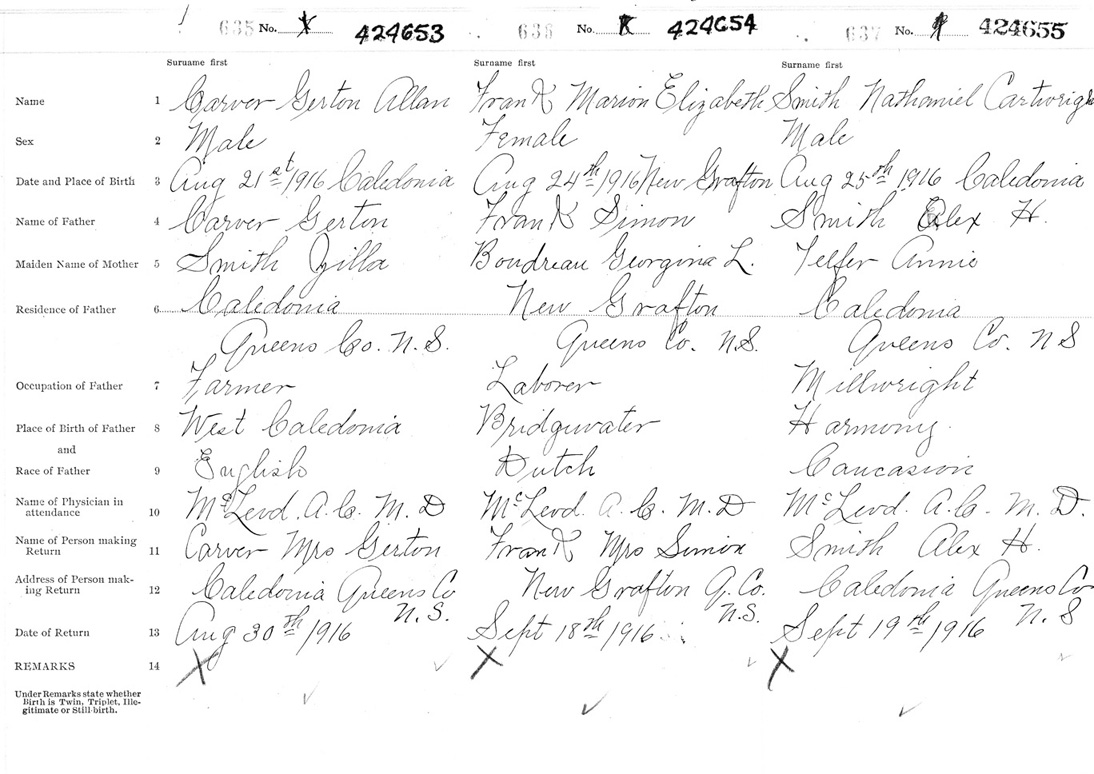 635 No. 424653 636 No. 424654 637 No. 424655
Surname first Surname first Surname first
Name 1 Carver Gerton Allan Frank Marion Elizabeth Smith Nathaniel Cartwrigh
Sex 2 Male Female Male
Date and Place of Birth 3 Aug 21st/1916 Caledonia Aug 24th/1916 New Grafton Aug 25th 1916 Caledonia
Name of Father 4 Carver Gerton Frank Simon Smith Alex H.
Maiden Name of Mother 5 Smith Zilla Boudreau Georgina L. Telfer Annie
Residence of Father 6 Caledonia New Grafton Caledonia
Queens Co. N.S. Queens Co. N.S. Queens Co. N S
Occupation of Father 7 Farmer Laborer Millwright
Place of Birth of Father 8 West Caledonia Bridgwater Harmony.
and
Race of Father 9 English Dutch Caucasion
Name of Physician in
attendance 10 McLeod. A.C. M.D McLeod. A.C. M.D McLeod. A.C. M.D.
Name of Person making
Return 11 Carver Mrs Gerton Frank Mrs Simon Smith Alex H.
Address of Person mak-
ing Return 12 Caledonia Queens Co New Grafton Q. Co. Caledonia Queens Co
N.S. N.S. N.S
Date of Return 13 Aug 30th/1916 Sept 18th/1916 Sept 19th/1916
REMARKS 14 X X X
Under Remarks state whether
Birth is Twin, Triplet, Ille-
gitimate or Still-birth.